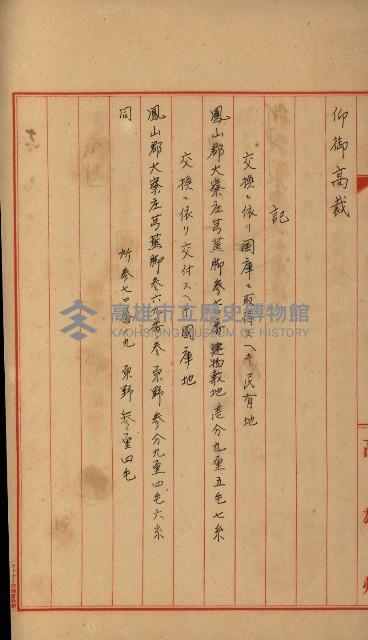 仰御高裁
記
交換ニ依リ國庫ニ取得スヘキ民有地
鳳山郡大寮庄芎蕉脚参七 建物敷地 壱分九厘五毛七糸
交換ニ依リ交付スヘキ國庫地
鳳山郡大寮庄芎蕉脚参六 参 原野 参分九厘四毛六糸
同 所参七 九 原野 参厘四毛
高雄州
高雄市立歷史博物館
KAOHSIUNG MUSEUM OF HISTORY